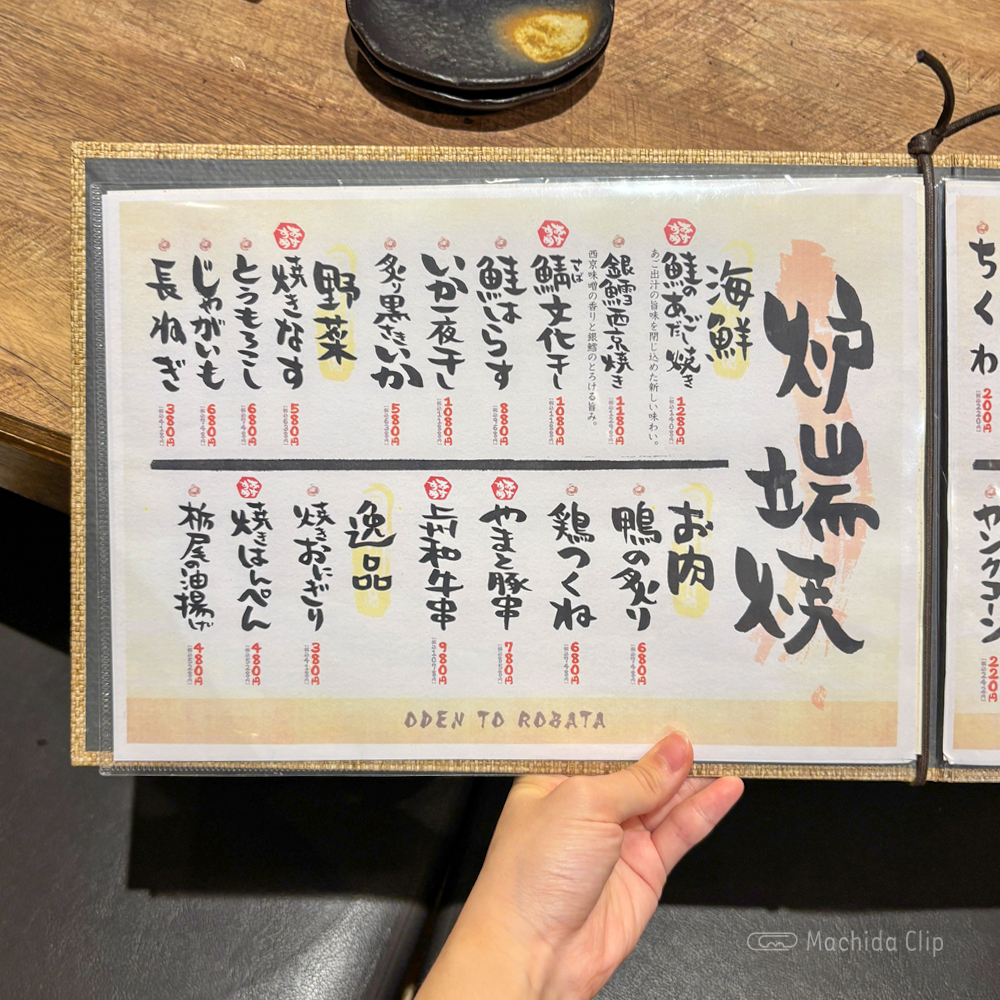 炉端焼
海鮮
おすすめ
鮭のあごだし焼き
あご出汁の旨味を閉じ込めた新しい味わい。
1280円
銀鱈西京焼き
西京味噌の香りと銀鱈のとろける旨み。
1180円
おすすめ
鯖文化干し
さば
1080円
鮭はらす
880円
いか一夜干し
1080円
炙り黒さきいか
580円
野菜
おすすめ
焼きなす
580円
とうもろこし
680円
じゃがいも
680円
長ねぎ
380円
お肉
鴨の炙り
680円
鶏つくね
680円
おすすめ
やまと豚串
780円
おすすめ
上州和牛串
980円
逸品
焼きおにぎり
380円
おすすめ
焼きはんぺん
480円
栃尾の油揚げ
480円
ODEN TO ROBATA
ちくわ
200円
ヤングコーン
220円
Machida Clip